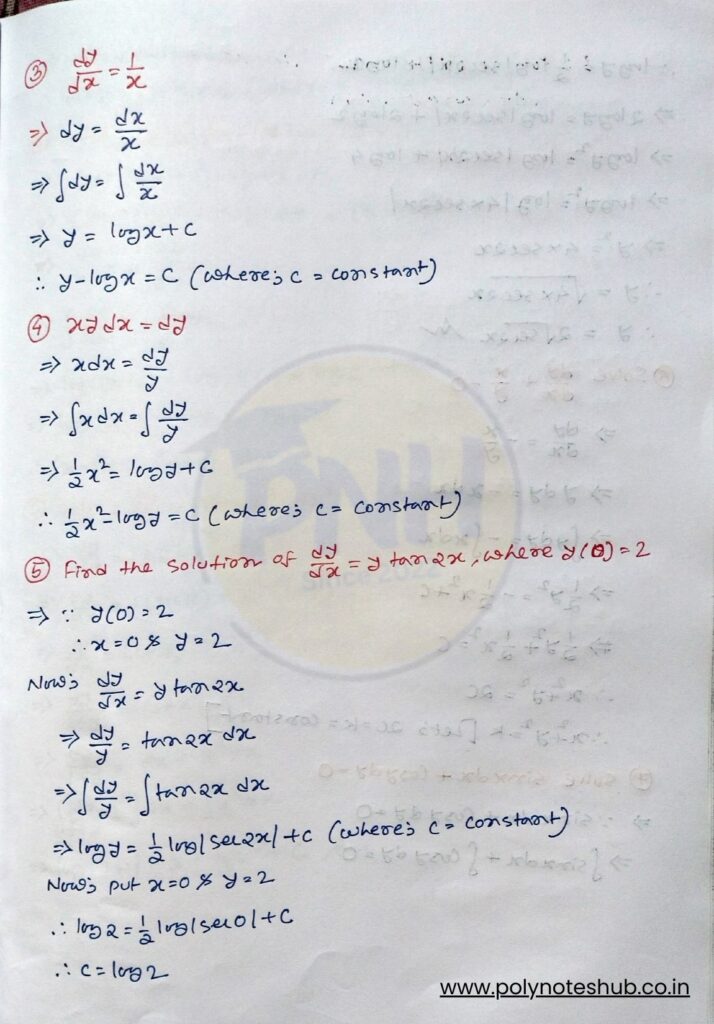 ③ dy/dx = 1/x
⇒ dy = dx/x
⇒ ∫dy = ∫dx/x
⇒ y = logx + c
∴ y - logx = c (where; c = constant)
④ xy dx = dy
⇒ xdx = dy/y
⇒ ∫x dx = ∫dy/y
⇒ 1/2 x² = logy + c
∴ 1/2 x² - logy = c (where; c = constant)
⑤ Find the solution of dy/dx = y tan2x, where y(0) = 2
⇒ ∵ y(0) = 2
∴ x = 0 & y = 2
Now; dy/dx = y tan2x
⇒ dy/y = tan2x dx
⇒ ∫dy/y = ∫tan2x dx
⇒ logy = 1/2 log|sec2x| + c (where; c = constant)
Now; put x = 0 & y = 2
∴ log2 = 1/2 log|sec0| + c
∴ c = log2
PNH
Since 2022
www.polynoteshub.co.in